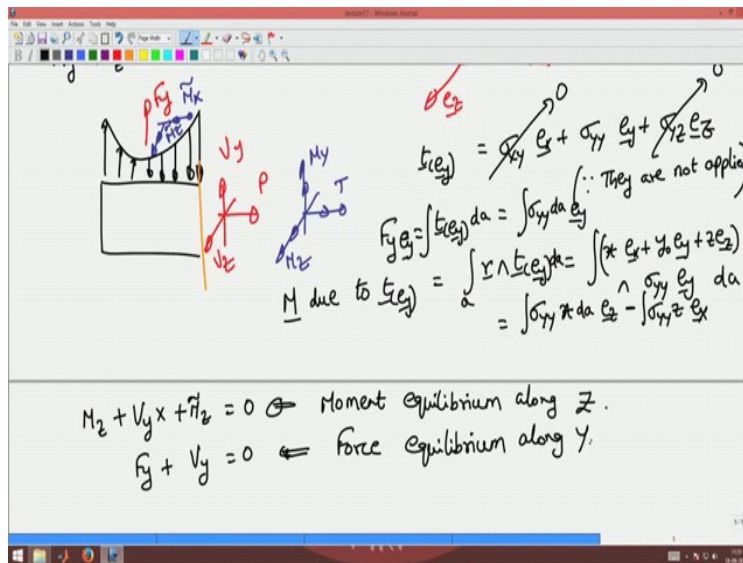 lecture17 - Windows Journal
File Edit View Insert Actions Tools Help
Page Width
B I
Fy M̃x
M̃z
Vy
P
Vz
My
T
Mz
e_z
0 0
t(e_y) = σxy e_x + σyy e_y + σyz e_z
(∵ They are not applied
Fy e_y = ∫ t(e_y) da = ∫ σyy da e_y
M due to t(e_y) = ∫_a r ∧ t(e_y) da = ∫ (x e_x + y_0 e_y + z e_z)
∧ σyy e_y da
= ∫ σyy x da e_z - ∫ σyy z e_x
Mz + Vy x + M̃z = 0 ⇐ Moment equilibrium along Z.
Fy + Vy = 0 ⇐ Force equilibrium along Y.